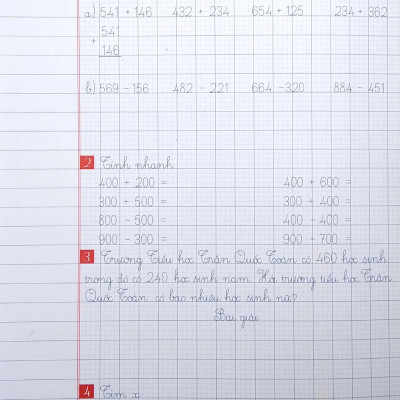 a) 541 + 146 432 + 234 654 + 125 234 + 362
541
+
146
b) 569 - 156 482 - 221 664 - 320 884 - 451
2 Tính nhanh
400 + 200 = 400 + 600 =
300 + 500 = 300 + 400 =
800 - 500 = 400 - 400 =
900 - 300 = 900 - 700 =
3 Trường Tiểu học Trần Quốc Toản có 460 học sinh
trong đó có 240 học sinh nam. Hỏi trường tiểu học Trần
Quốc Toản có bao nhiêu học sinh nữ?
Bài giải
4 Tìm x